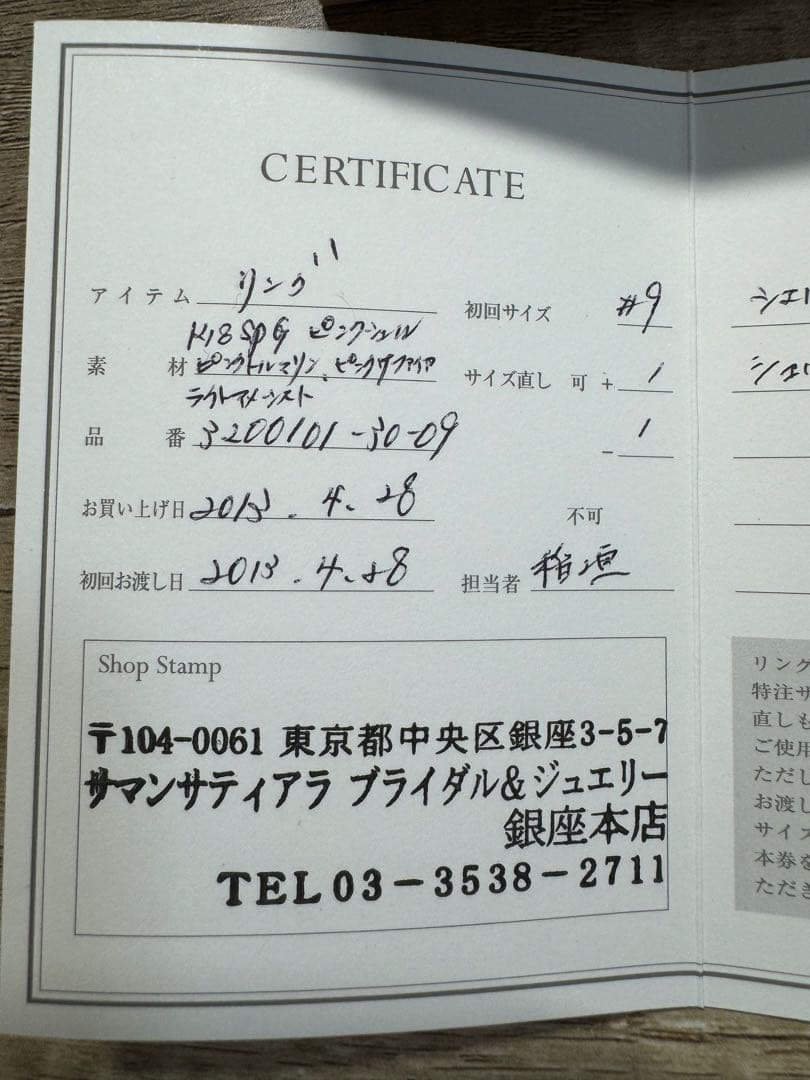 CERTIFICATE
アイテム リング
初回サイズ #9
K18SPG ピンクシェル
素材 ピンクトルマリン、ピンクサファイヤ
サイズ直し 可 + 1
品番 3200101-30-09
- 1
お買い上げ日 2013.4.28
不可
初回お渡し日 2013.4.28
担当者 稲垣
Shop Stamp
〒104-0061 東京都中央区銀座3-5-7
サマンサティアラ ブライダル&ジュエリー
銀座本店
TEL03-3538-2711
リング
特注サ
直しも
ご使用
ただし
お渡し
サイズ
本券を
ただき